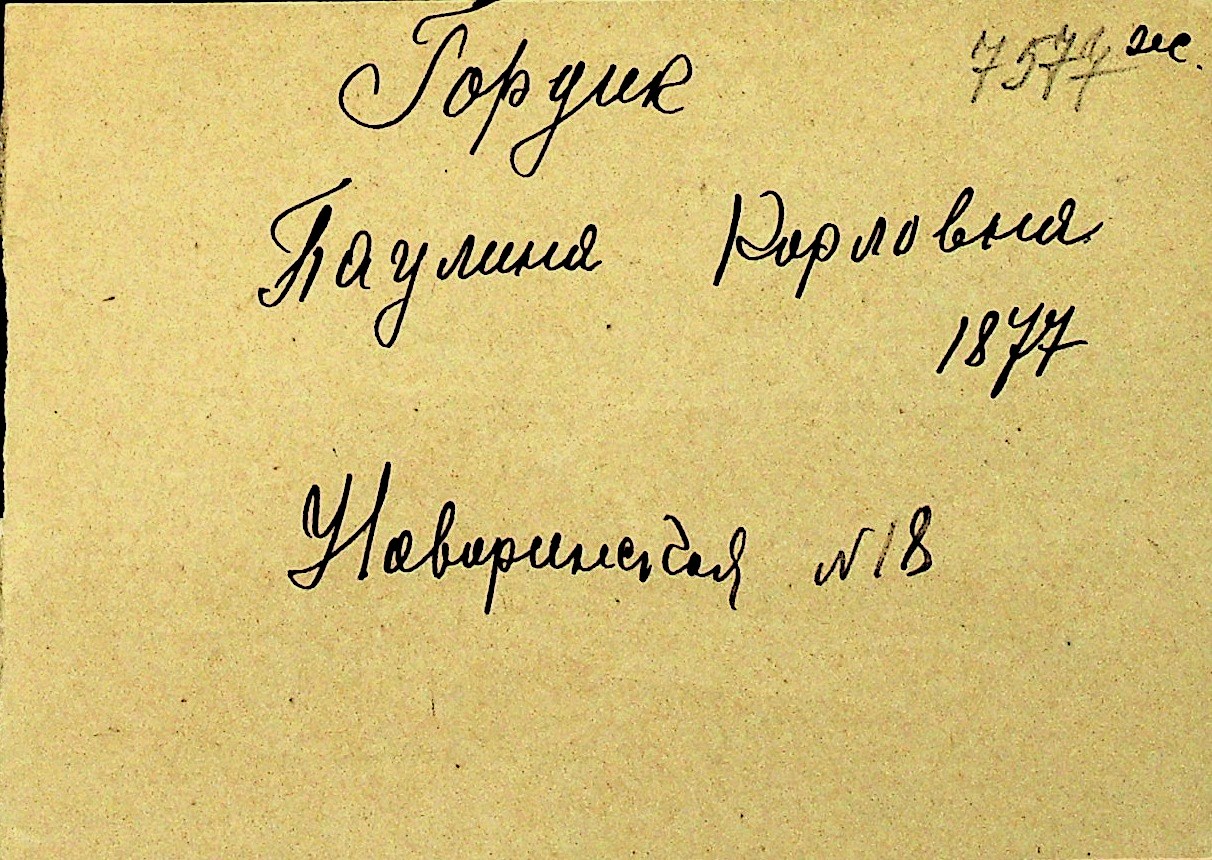 Гордик
Паулина Карловна
1877
Наваринская N 18